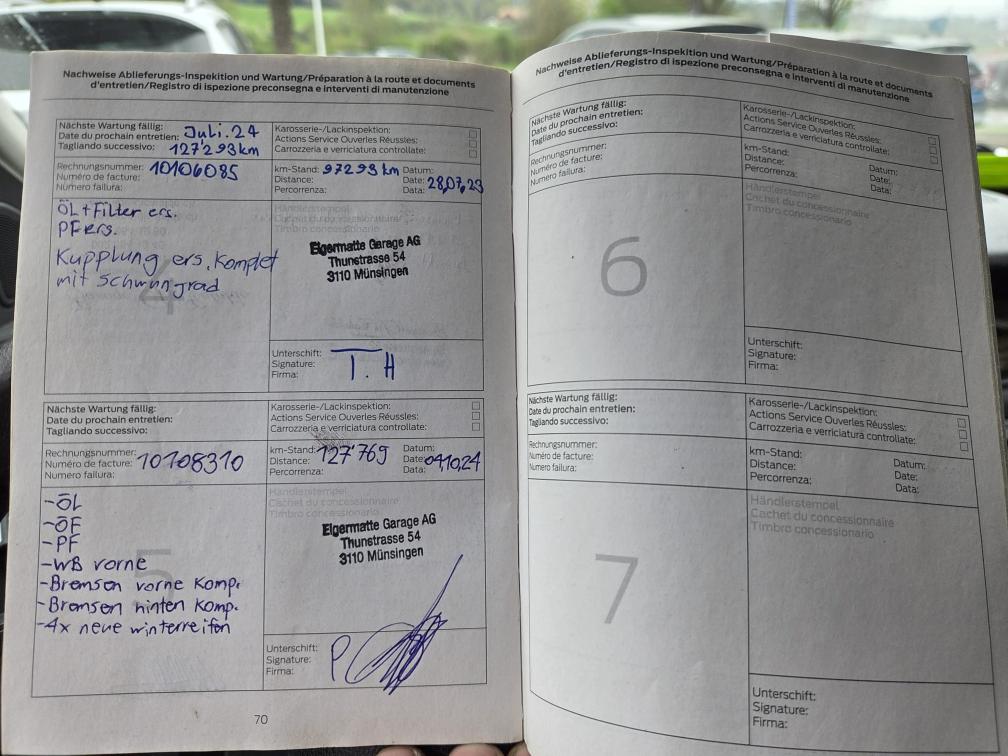 Nachweise Ablieferungs-Inspektion und Wartung/Préparation à la route et documents
d'entretien/Registro di ispezione preconsegna e interventi di manutenzione
Nächste Wartung fällig:
Date du prochain entretien: Juli.24
Tagliando successivo: 127'293 km
Karosserie-/Lackinspektion:
Actions Service Ouverles Réussles:
Carrozzeria e verriciatura controllate:
Rechnungsnummer:
Numéro de facture: 10106085
Numero failura:
km-Stand: 97293 km Datum:
Distance: Date: 28,07,23
Percorrenza: Data:
ÖL + Filter ers.
PF ers.
Kupplung ers. Komplet
mit Schwungrad
4
Händlerstempel
Cachet du concessionnaire
Timbro concessionario
Eigermatte Garage AG
Thunstrasse 54
3110 Münsingen
Unterschift:
Signature: T. H
Firma:
Nächste Wartung fällig:
Date du prochain entretien:
Tagliando successivo:
Karosserie-/Lackinspektion:
Actions Service Ouverles Réussles:
Carrozzeria e verriciatura controllate:
Rechnungsnummer:
Numéro de facture: 10108310
Numero failura:
km-Stand: 127'769 Datum:
Distance: Date: 04.10.24
Percorrenza: Data:
-ÖL
-ÖF
-PF
-WB vorne
-Bremsen vorne Komp.
-Bremsen hinten Komp.
-4x neue winterreifen
5
Händlerstempel
Cachet du concessionnaire
Timbro concessionario
Eigermatte Garage AG
Thunstrasse 54
3110 Münsingen
Unterschift:
Signature:
Firma:
70
Nachweise Ablieferungs-Inspektion und Wartung/Préparation à la route et documents
d'entretien/Registro di ispezione preconsegna e interventi di manutenzione
Nächste Wartung fällig:
Date du prochain entretien:
Tagliando successivo:
Karosserie-/Lackinspektion:
Actions Service Ouverles Réussles:
Carrozzeria e verriciatura controllate:
Rechnungsnummer:
Numéro de facture:
Numero failura:
km-Stand: Datum:
Distance: Date:
Percorrenza: Data:
6
Händlerstempel
Cachet du concessionnaire
Timbro concessionario
Unterschift:
Signature:
Firma:
Nächste Wartung fällig:
Date du prochain entretien:
Tagliando successivo:
Karosserie-/Lackinspektion:
Actions Service Ouverles Réussles:
Carrozzeria e verriciatura controllate:
Rechnungsnummer:
Numéro de facture:
Numero failura:
km-Stand: Datum:
Distance: Date:
Percorrenza: Data:
7
Händlerstempel
Cachet du concessionnaire
Timbro concessionario
Unterschift:
Signature:
Firma: